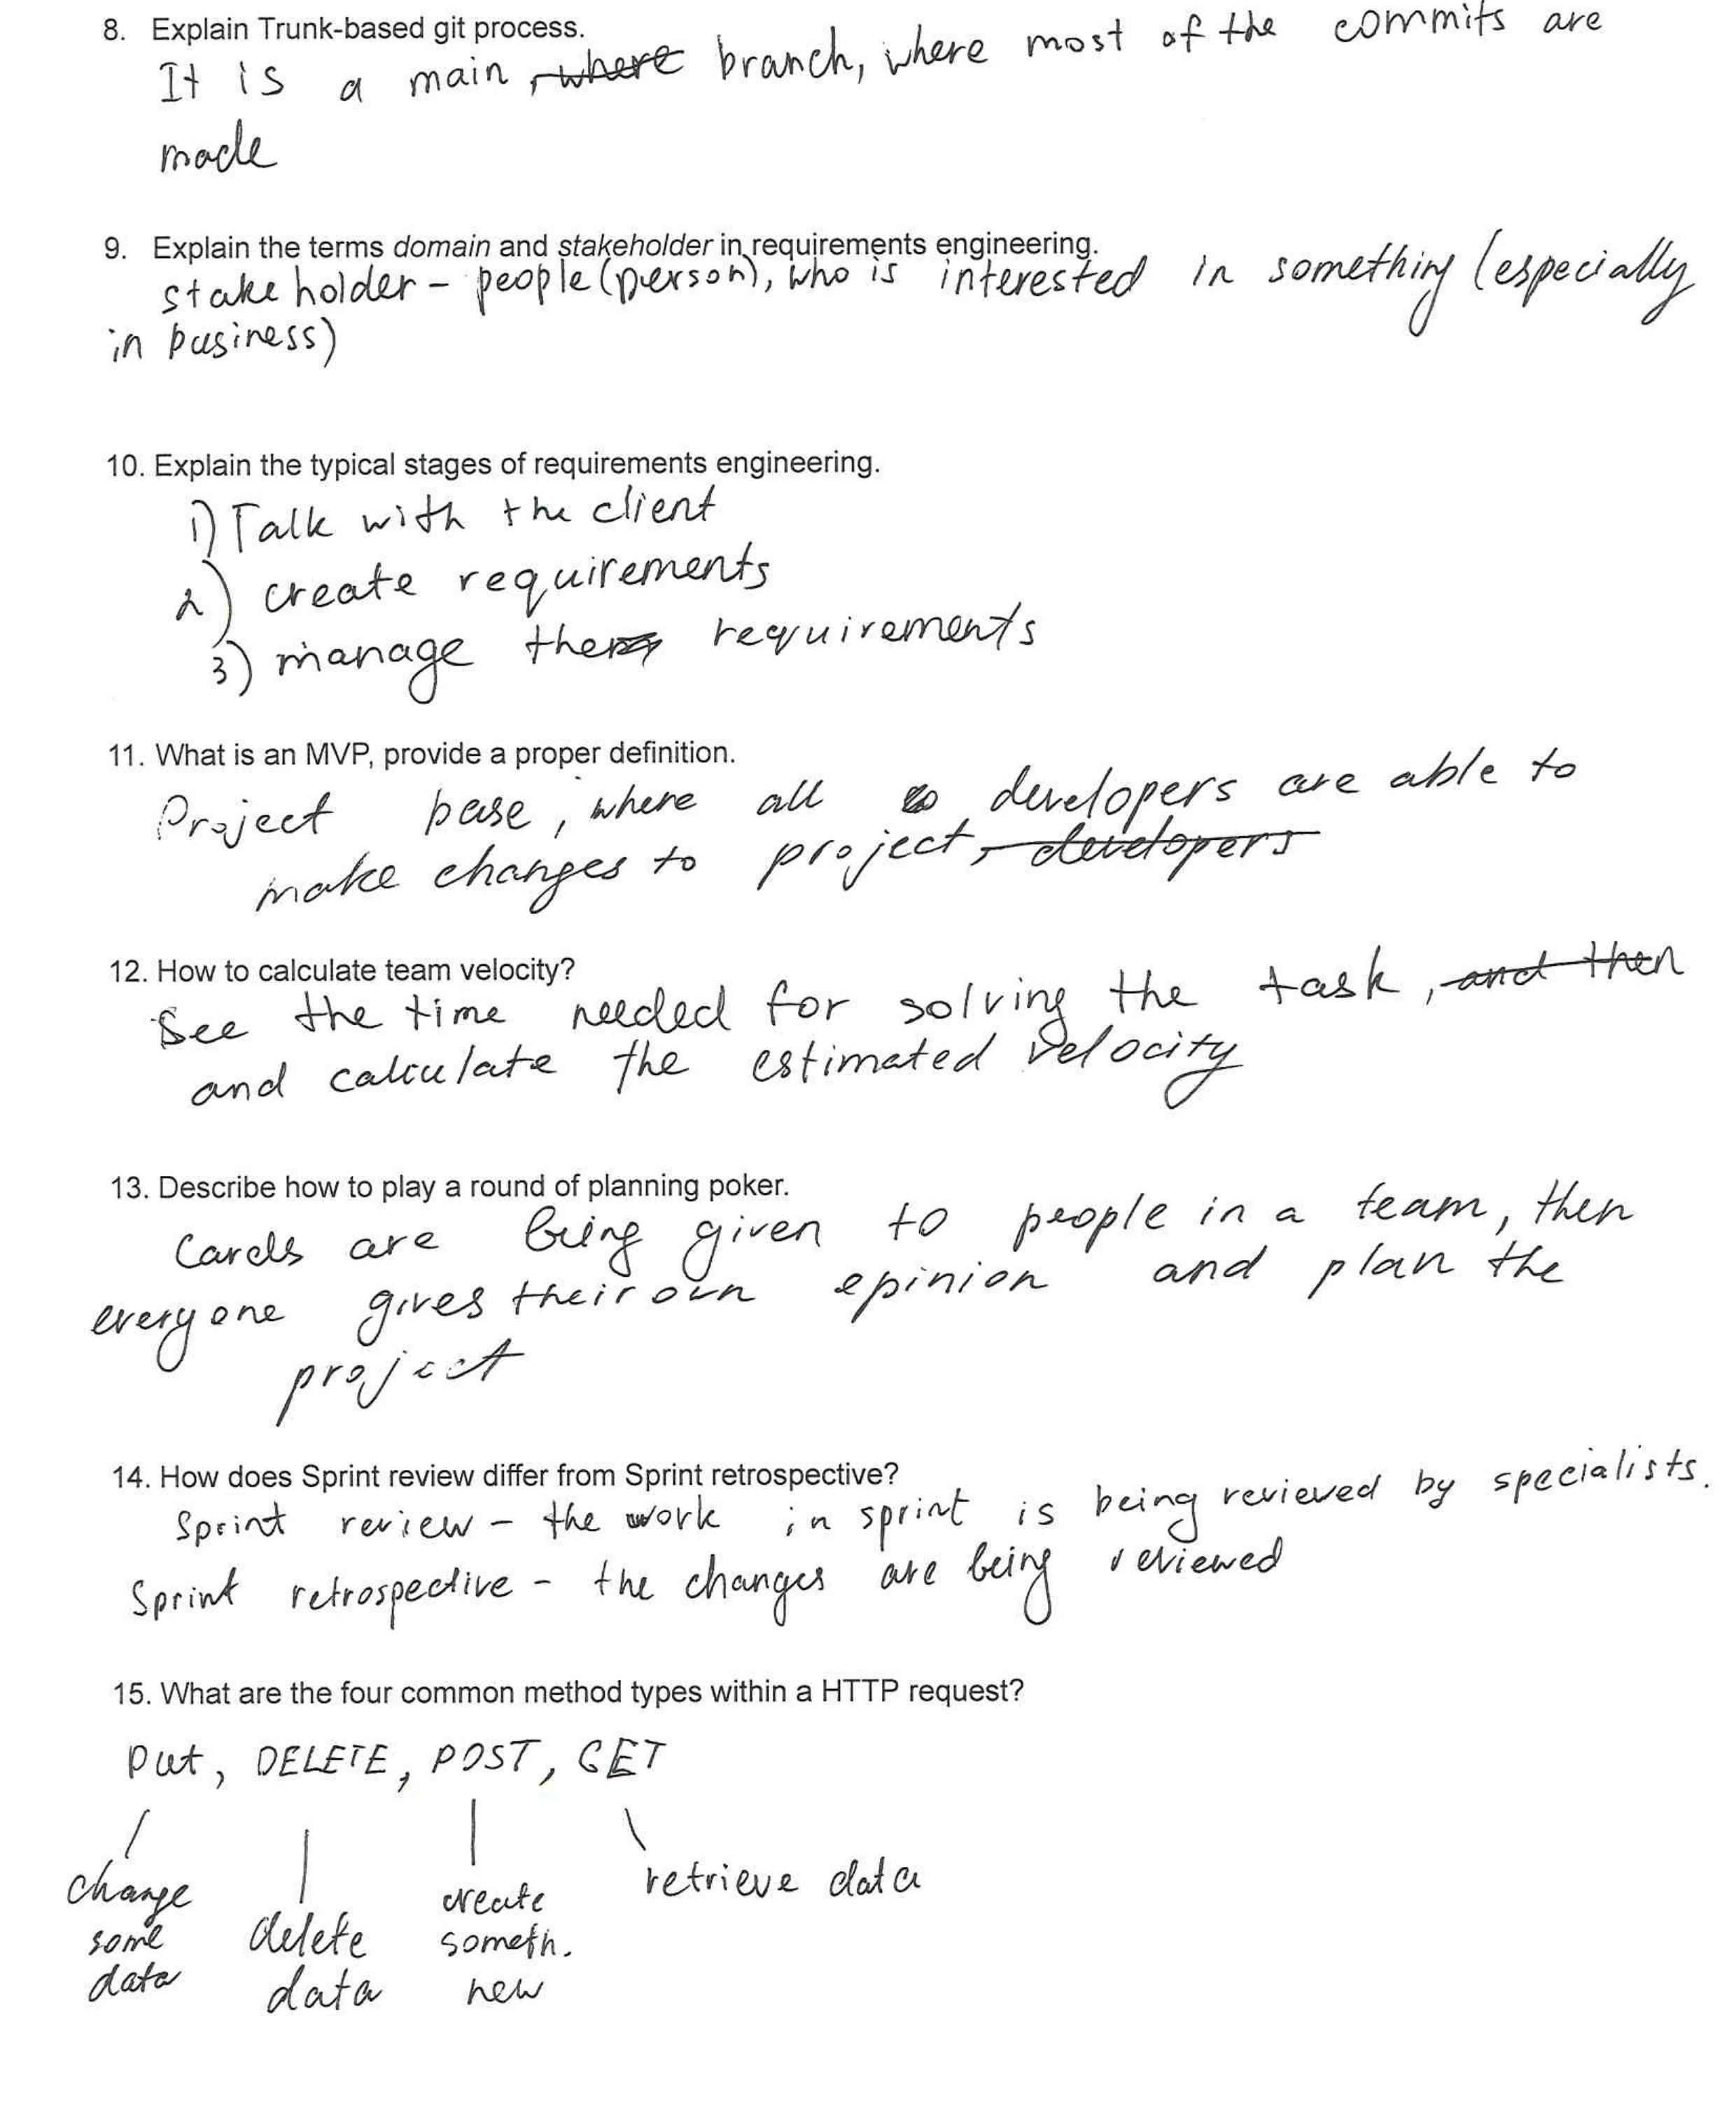 8. Explain Trunk-based git process.
It is a main , where branch, where most of the commits are
made
9. Explain the terms domain and stakeholder in requirements engineering.
stakeholder - people (person), who is interested in something (especially
in business)
10. Explain the typical stages of requirements engineering.
1) Talk with the client
2) create requirements
3) manage them requirements
11. What is an MVP, provide a proper definition.
Project base, where all developers are able to
make changes to project, developers
12. How to calculate team velocity?
See the time needed for solving the task, and then
and calculate the estimated velocity
13. Describe how to play a round of planning poker.
Cards are being given to people in a team, then
everyone gives their own opinion and plan the
project
14. How does Sprint review differ from Sprint retrospective?
Sprint review - the work in sprint is being reviewed by specialists.
Sprint retrospective - the changes are being reviewed
15. What are the four common method types within a HTTP request?
Put, DELETE, POST, GET
change some data
delete data
create someth. new
retrieve data